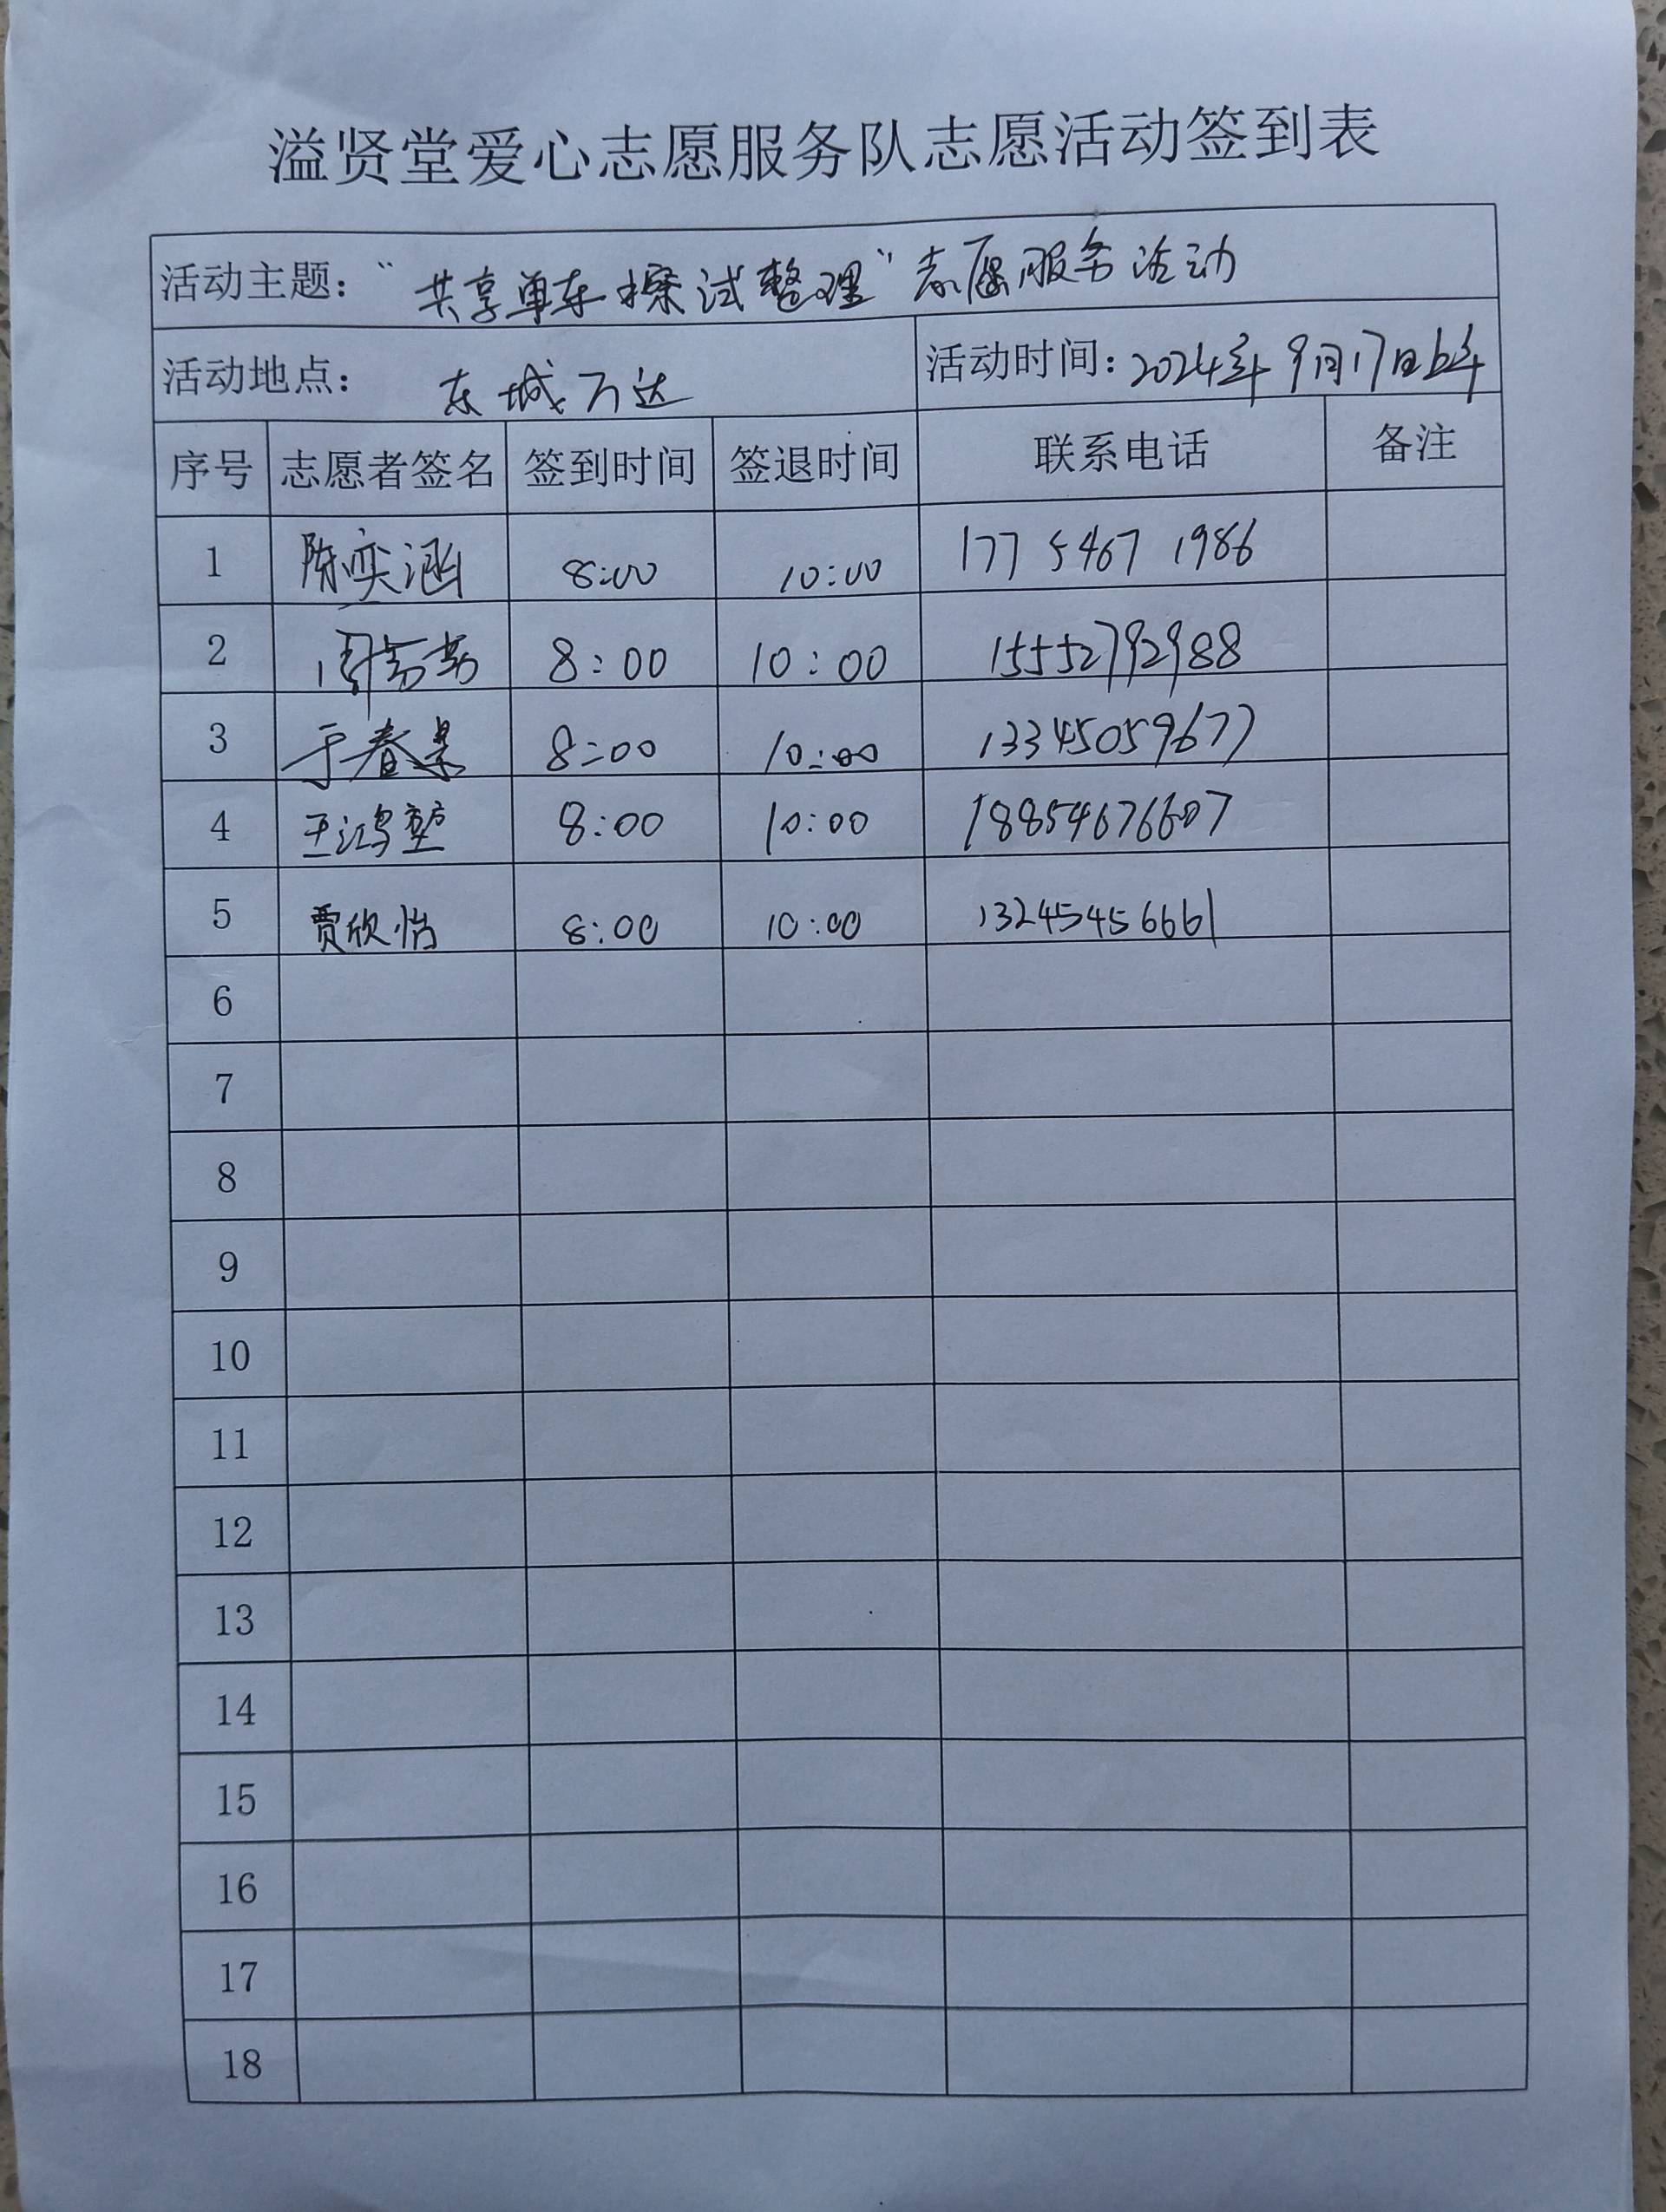 溢贤堂爱心志愿服务队志愿活动签到表
活动主题：“共享单车擦试整理”志愿服务活动
活动地点： 东城万达 活动时间：2024年9月17日上午
序号 志愿者签名 签到时间 签退时间 联系电话 备注
1 陈奕涵 8:00 10:00 177 5467 1986
2 周芳芳 8:00 10:00 15552792988
3 于春景 8:00 10:00 13345059677
4 王鸿堃 8:00 10:00 18854676607
5 贾欣怡 8:00 10:00 13245456661
6
7
8
9
10
11
12
13
14
15
16
17
18